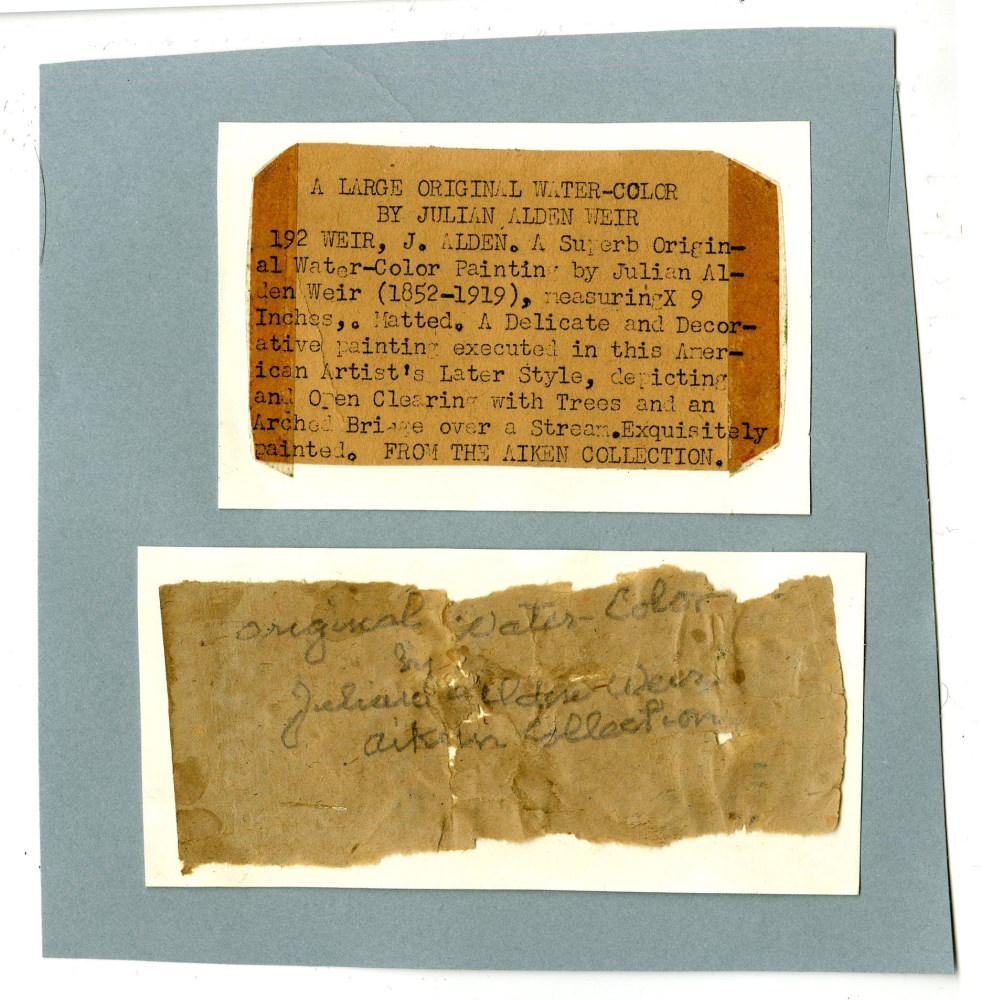 A LARGE ORIGINAL WATER-COLOR
BY JULIAN ALDEN WEIR
192 WEIR, J. ALDEN. A Superb Origin-
al Water-Color Painting by Julian Al-
den Weir (1852-1919), measuringX 9
Inches,. Matted. A Delicate and Decor-
ative painting executed in this Amer-
ican Artist's Later Style, depicting
and Open Clearing with Trees and an
Arched Bridge over a Stream.Exquisitely
painted. FROM THE AIKEN COLLECTION.
original Water-Color
by
Julian Alden Weir
Collection